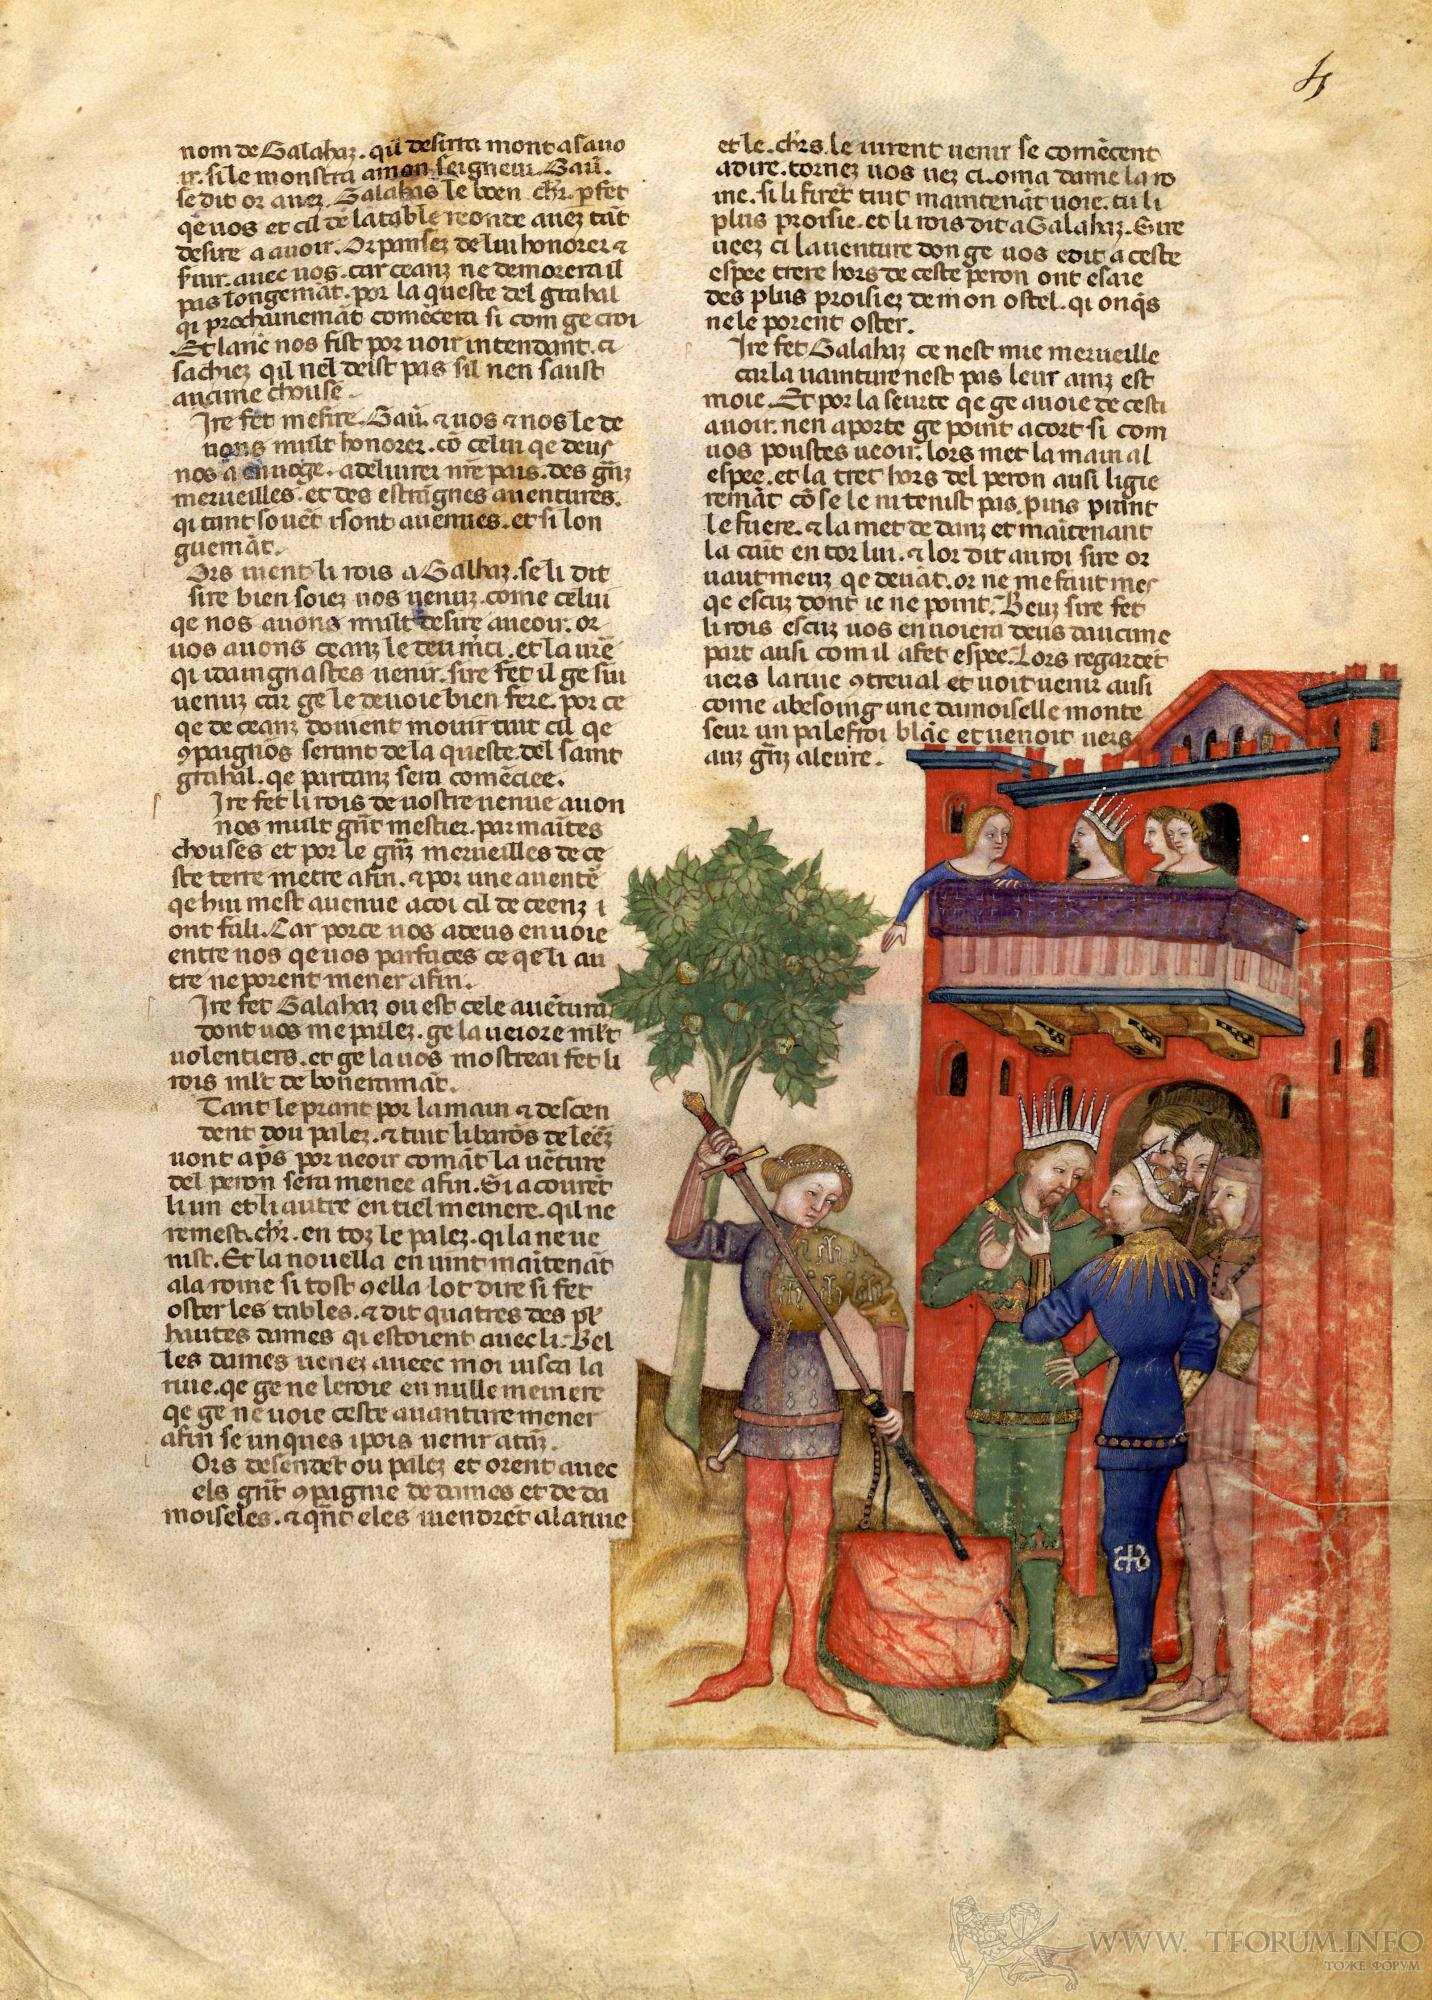 4
nom de Galahaz. qu desirra mont a savo
ir. si le monstra a mon seigneur. Gaū.
se dit or avez. Galahas le boen chr. pfet
qe vos et cil de la table reonde avez tāt
desire a avoir. Or pansez de lui honorer ⁊
fuir. avec vos. car ceanz ne demorera il
pas longemāt. por la queste del grahal
qi prochainemāt comēcera si com ge croi
Et lanc nos fist por voir intendant. ci
sachiez qil nel deist pas sil nen saust
aucune chouse.
Ire fet mesire. Gaū. ⁊ vos ⁊ nos le de
vons mult honorer. cō celui qe deus
nos a envoge. a delivrer nr̄e pais. des gn̄z
merveilles. et des estrāgnes aventures.
qi tant sovēt isont avenues. et si lon
guemāt.
Ors vient li rois a Galhaz. se li dit
sire bien soiez vos venuz. come celui
qe nos avons mult desire aveoir. or
vos avons ceanz le deu mci. et la vr̄e
qi idaingnastes venir. sire fet il ge sui
venuz car ge le devoie bien fere. por ce
qe de ceanz doivent movir tuit cil qe
ꝯpaignōs serunt de la queste del saint
grahal. qe partanz sera comēciee.
Ire fet li rois de vostre venue avon
nos mult gn̄t mestier. par maites
chouses et por le gn̄z merveilles de ce
ste terre metre afin. ⁊ por une aventē
qe hui mest avenue a coi cil de ceenz i
ont fali. Car porce vos a deus envoie
entre nos qe vos parfaces ce qe li au
tre ne porent mener afin.
Ire fet Galahaz ou est cele avētura
dont vos me parlez. ge la verore ml't
volentiers. et ge la vos mostreai fet li
rois ml't de bonerimāt.
Tant le prant por la main ⁊ descen
dent dou palez. ⁊ tuit li barōs de leēz
vont aps por veoir comāt la vēture
del peron sera menee afin. Si a courēt
li un et li autre en tiel meinere. qil ne
remest. chr. en toz le palez. qi la ne ve
nist. Et la novella en vint maitenāt
ala roine si tost ꝯ ella lot dire si fet
oster les tables. ⁊ dit quatres des pl'
hautes dames qi estoient avec li. Bel
les dames venez aveec moi iusca la
rive. qe ge ne leroie en nulle meinere
qe ge ne voie ceste avanture mener
afin se unques ipois venir a tāz.
Ors desendēt ou palez et orent avec
els gn̄t ꝯpaignie de dames et de da
moiseles. ⁊ qn̄t eles viendrēt a la rive
et le. chrs. le virent venir se comēcent
adire. tornez vos vez ci. oma dame la ro
ine. si li firēt tuit maintenāt voie. tu li
plus proisie. et li rois dit a Galahaz. Sire
veez ci la venture don ge vos edit a ceste
espee trere hors de ceste peron ont esaie
des plus proisiez de mon ostel. qi onqs
ne le porent oster.
Ire fet Galahaz ce nest mie merveille
car la vainture nest pas leur ainz est
moie. Et por la seurte qe ge avoie de cesti
avoir. nen aporte ge point a cort si com
vos poustes veoir. lors met la main al
espee. et la tret hors del peron ausi ligie
remāt cō se le ni tenist pas. puis priant
le fuere. ⁊ la met dedanz et maitenant
la caīt en tor lui. ⁊ lor dit au roi sire or
vaut meuz qe devāt. or ne me faut mes
qe escuz dont ie ne point. Beuz sire fet
li rois escuz vos envoiera deus daucune
part ausi com il a fet espee. Lors regardēt
vers la rive ꝯtreval et voit venir ausi
come abesoing une damoiselle monte
seur un palefroi blāc et venoit vers
auz gn̄z aleure.
WWW. TFORUM.INFO
ТОЖЕ ФОРУМ